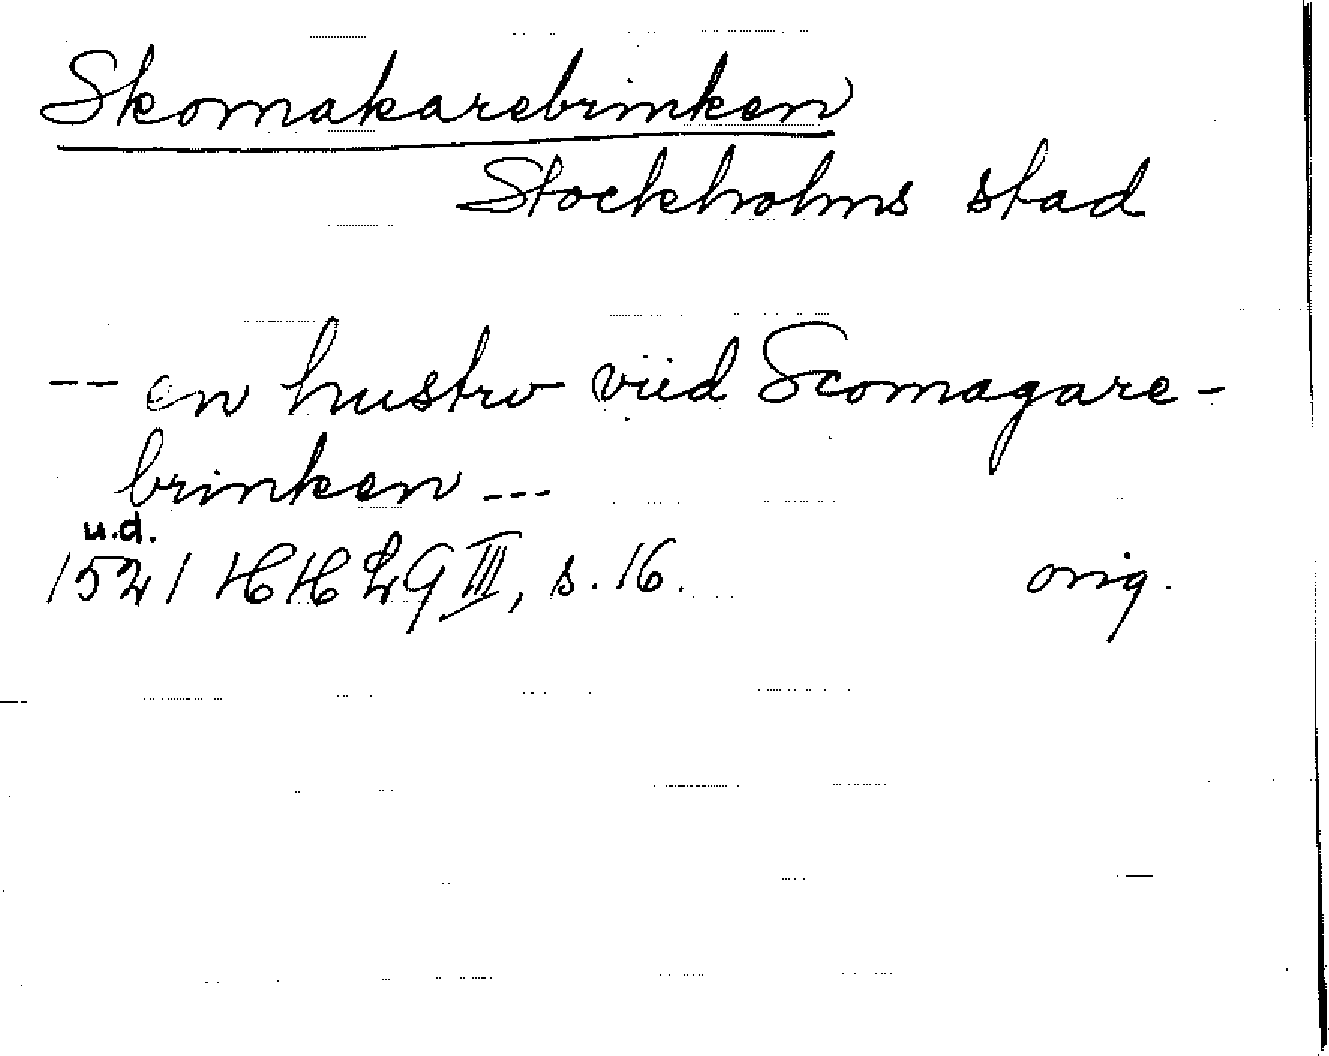 Skomakarebrinken
Stockholms stad
-- en hustrv viid Scomagare-
brinken ---
u.d.
1521 HH 29 III, s. 16. orig.